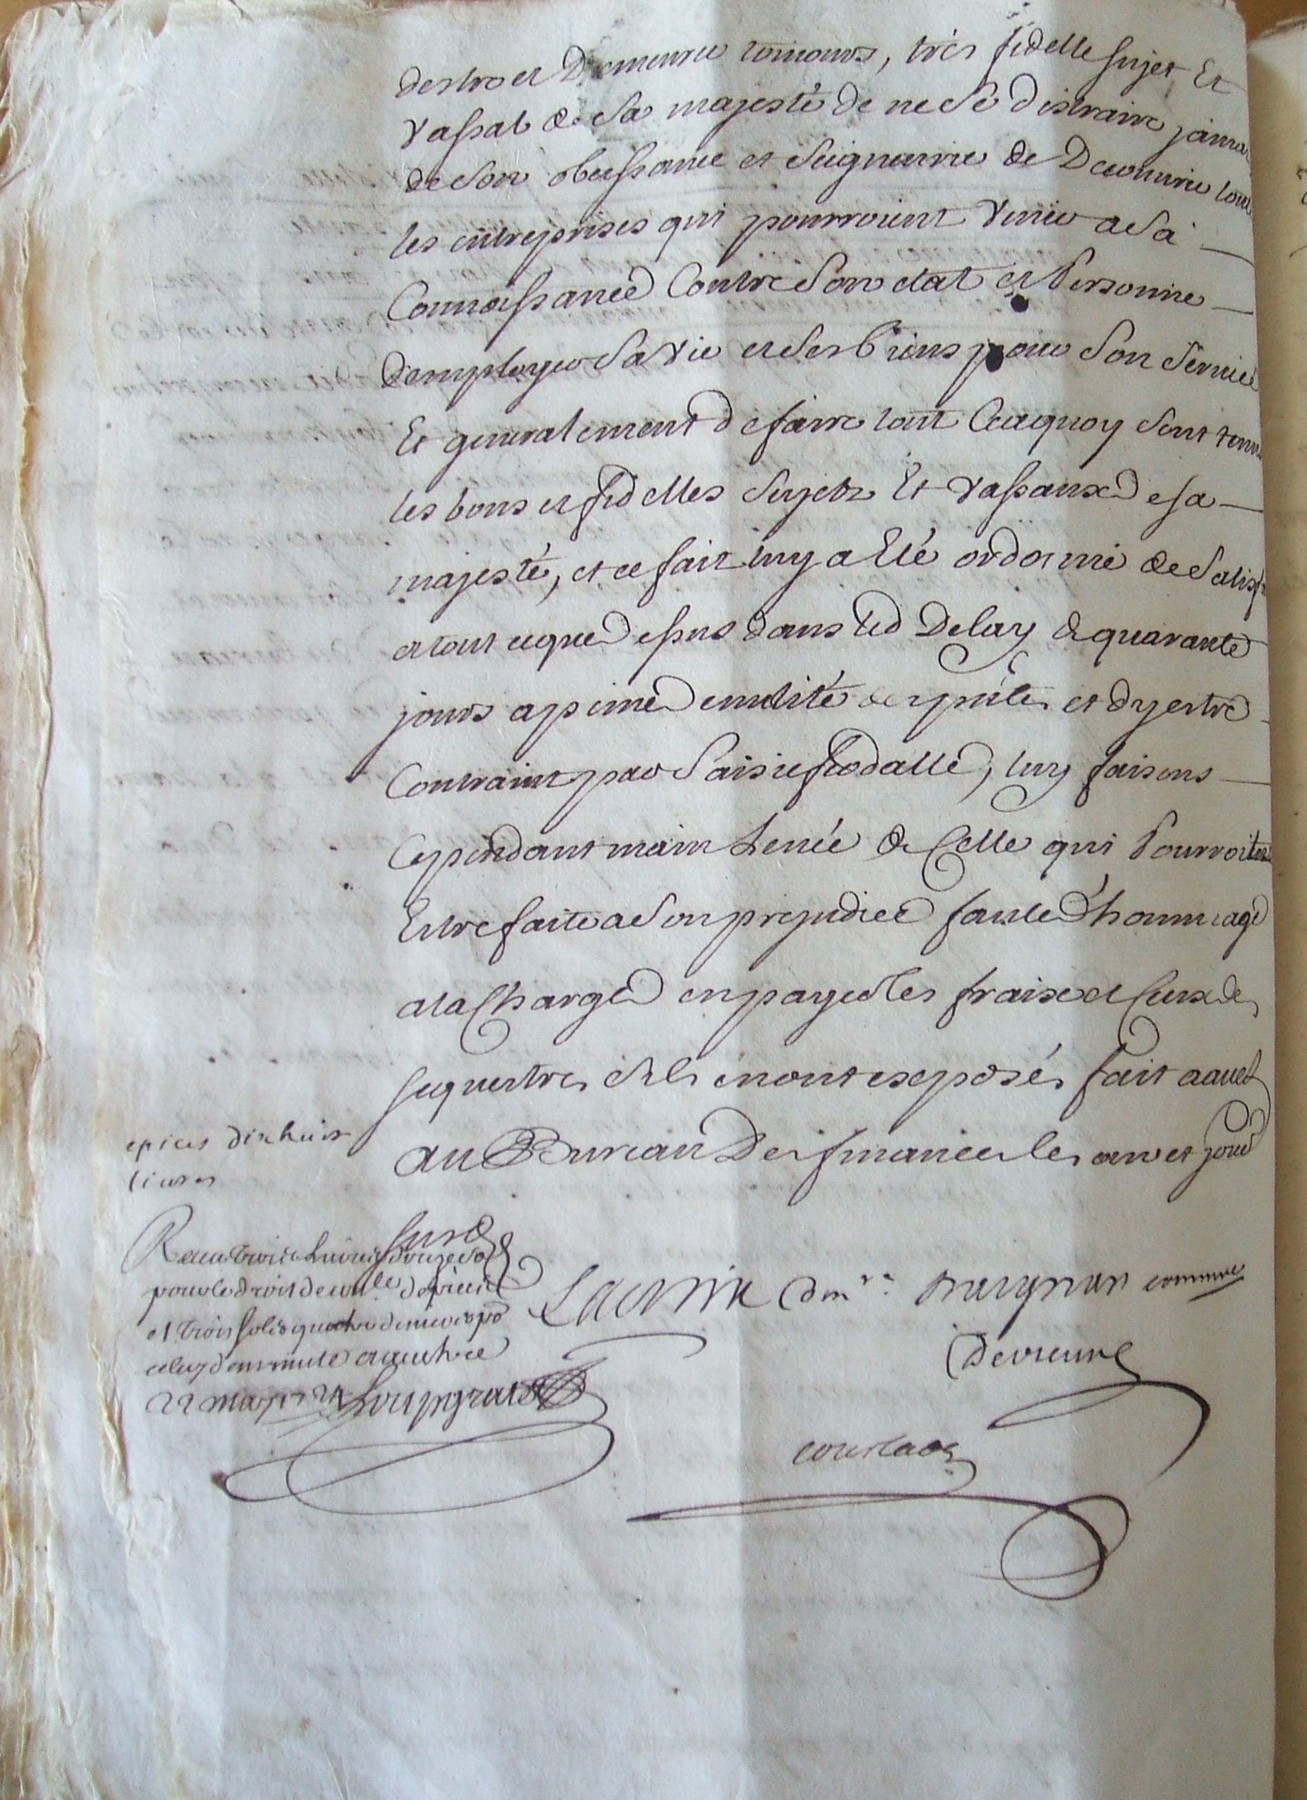 destre et Demeurer toujours, très fidelle sujet Et
vassal de Sa majesté de ne se distraire jama
de son obeissance et Seigneurie de Decouvrir tout
les entreprises qui pourroient venir a sa
Connoissance Contre Son etat et Personne
demployer sa vie et ses biens pour Son Service
Et generalement de faire tout Ceaquoy sont tenu
les bons et fidelles sujets Et vassaux de sa
majesté, et ce fait luy a Eté ordonné de Satisf
atout ceque dessus dans led Delay de quarante
jours apeine de nullité et dyestre
Contraint par Saisie feodalle, luy faisons
Cependant main Levée de Celle qui Pourroit
Estre faite a Son prejudice faute d'hommage
ala Charge den payer les fraix et Ceux de
sequestres sils en ont exposés fait aauch
au Bureau Des finances les an et jour
susd
epices dixhuit
livres
Receu trois livres douze so
pour le droit de d'epices
et trois sols quatre deniers po
celuy de minute aauch ce
22 may
Devienne